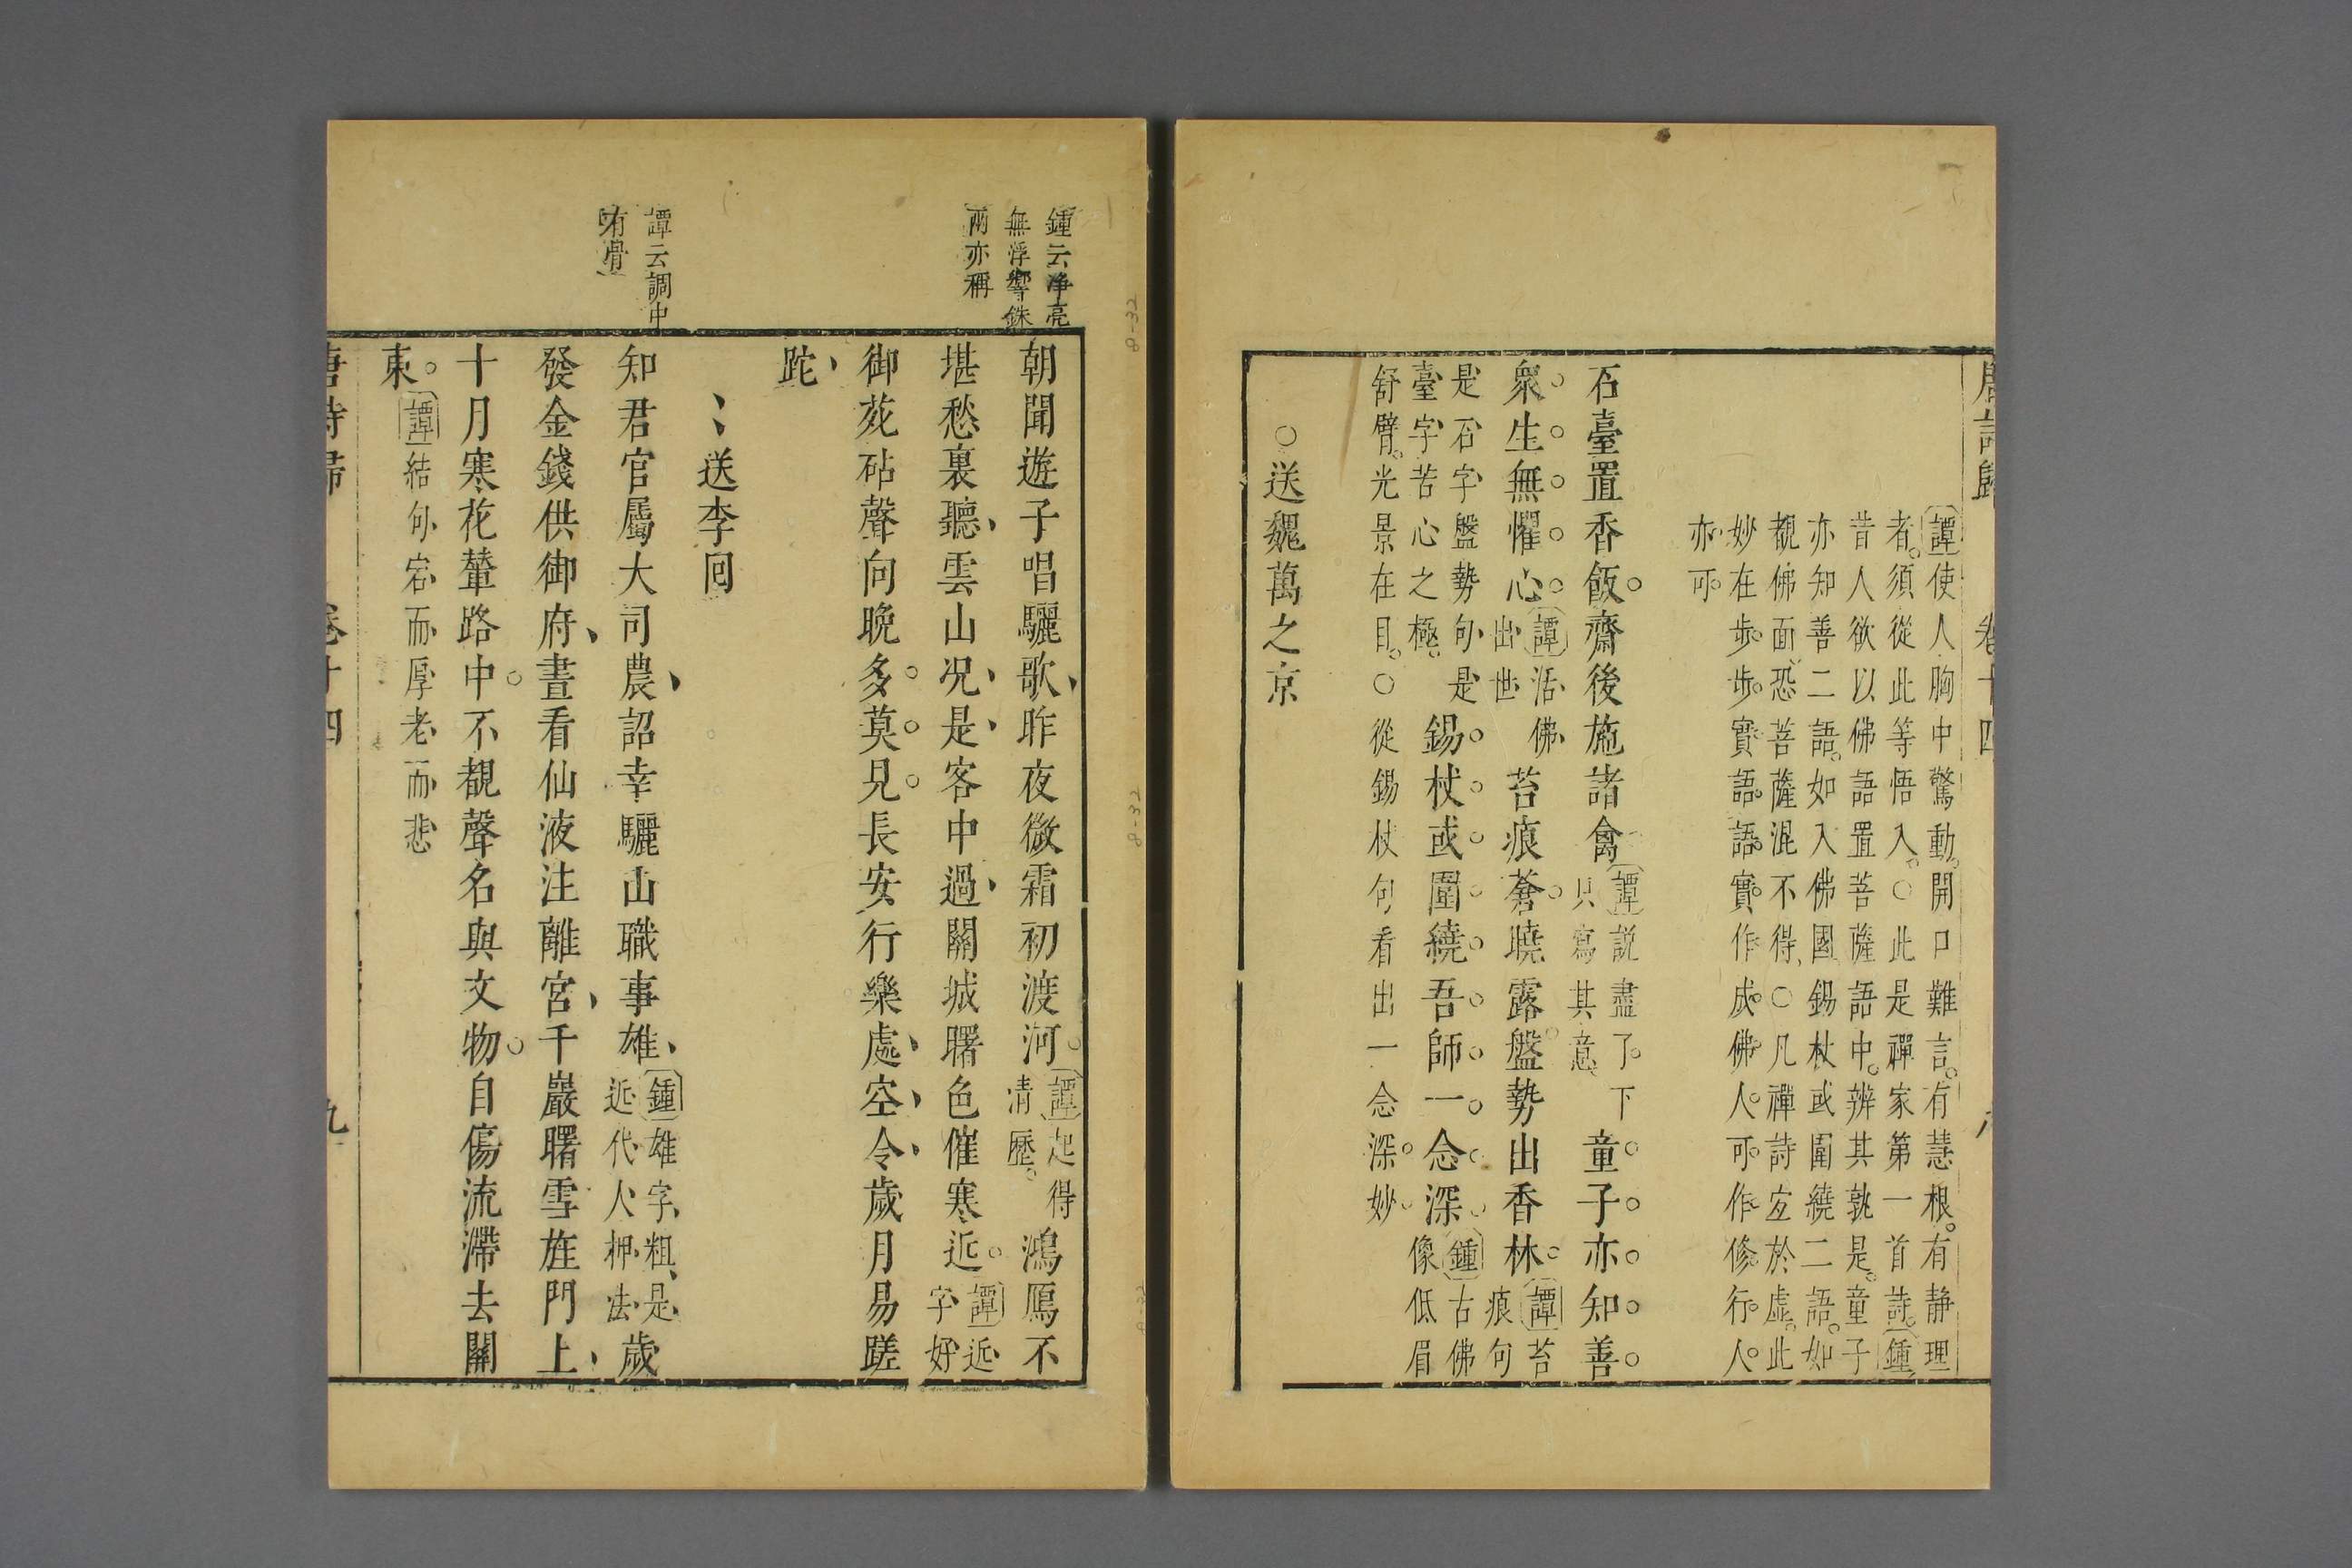 唐詩歸 卷十四 八
譚使人胸中驚動開口難言有慧根有靜理
者須從此等悟入○此是禪家第一首詩鍾
昔人欲以佛語置菩薩語中辨其孰是童子
亦知善二語如入佛國錫杖或圍繞二語如
覩佛面恐菩薩混不得○凡禪詩妄於虛此
妙在步步實語語實作成佛人可作修行人
亦可
石臺置香飯齋後施諸禽譚説盡了下只寫其意童子亦知善
衆生無懼心譚活佛出世苔痕蒼曉露盤勢出香林譚苔痕句
是石字盤勢句是臺字苦心之極錫杖或圍繞吾師一念深鍾古佛像低眉
舒臂光景在目○從錫杖句看出一念深妙
○送魏萬之京
鍾云淨亮
無浮響銖
兩亦稱
朝聞遊子唱驪歌昨夜微霜初渡河譚起得清歷鴻鴈不
堪愁裏聽雲山况是客中過關城曙色催寒近譚近字好
御苑砧聲向晚多莫見長安行樂處空令歲月易蹉
跎
送李回
譚云調中
有骨
知君官屬大司農詔幸驪山職事雄鍾雄字粗是近代人押法歲
發金錢供御府晝看仙液注離宮千巖曙雪旌門上
十月寒花輦路中不覩聲名與文物自傷流滯去關
東譚結句宕而厚老而悲
唐詩歸 卷十四 九